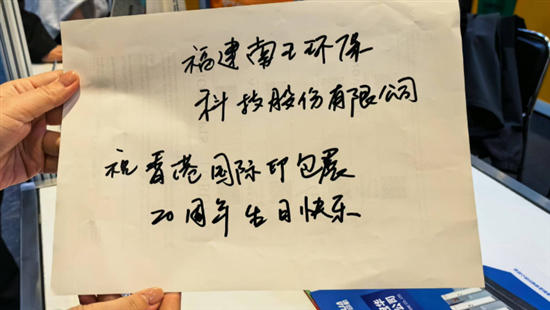 福建南王环保
科技股份有限公司
祝香港国际印包展
20周年生日快乐